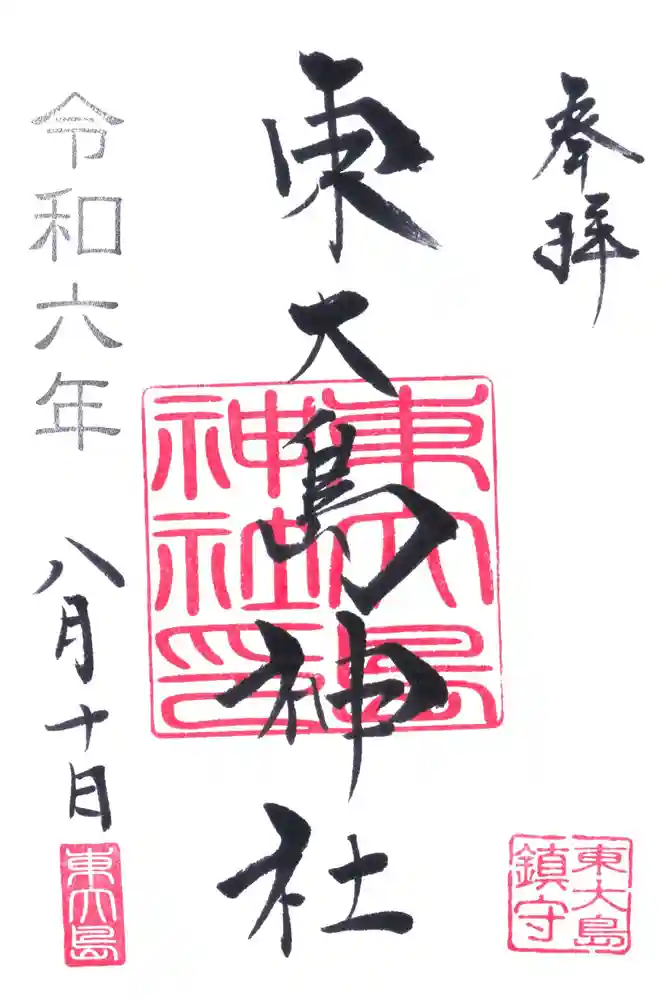 奉拝
東大島神社
東大島
神社印
東大島
鎮守
令和六年
八月十日
東大島